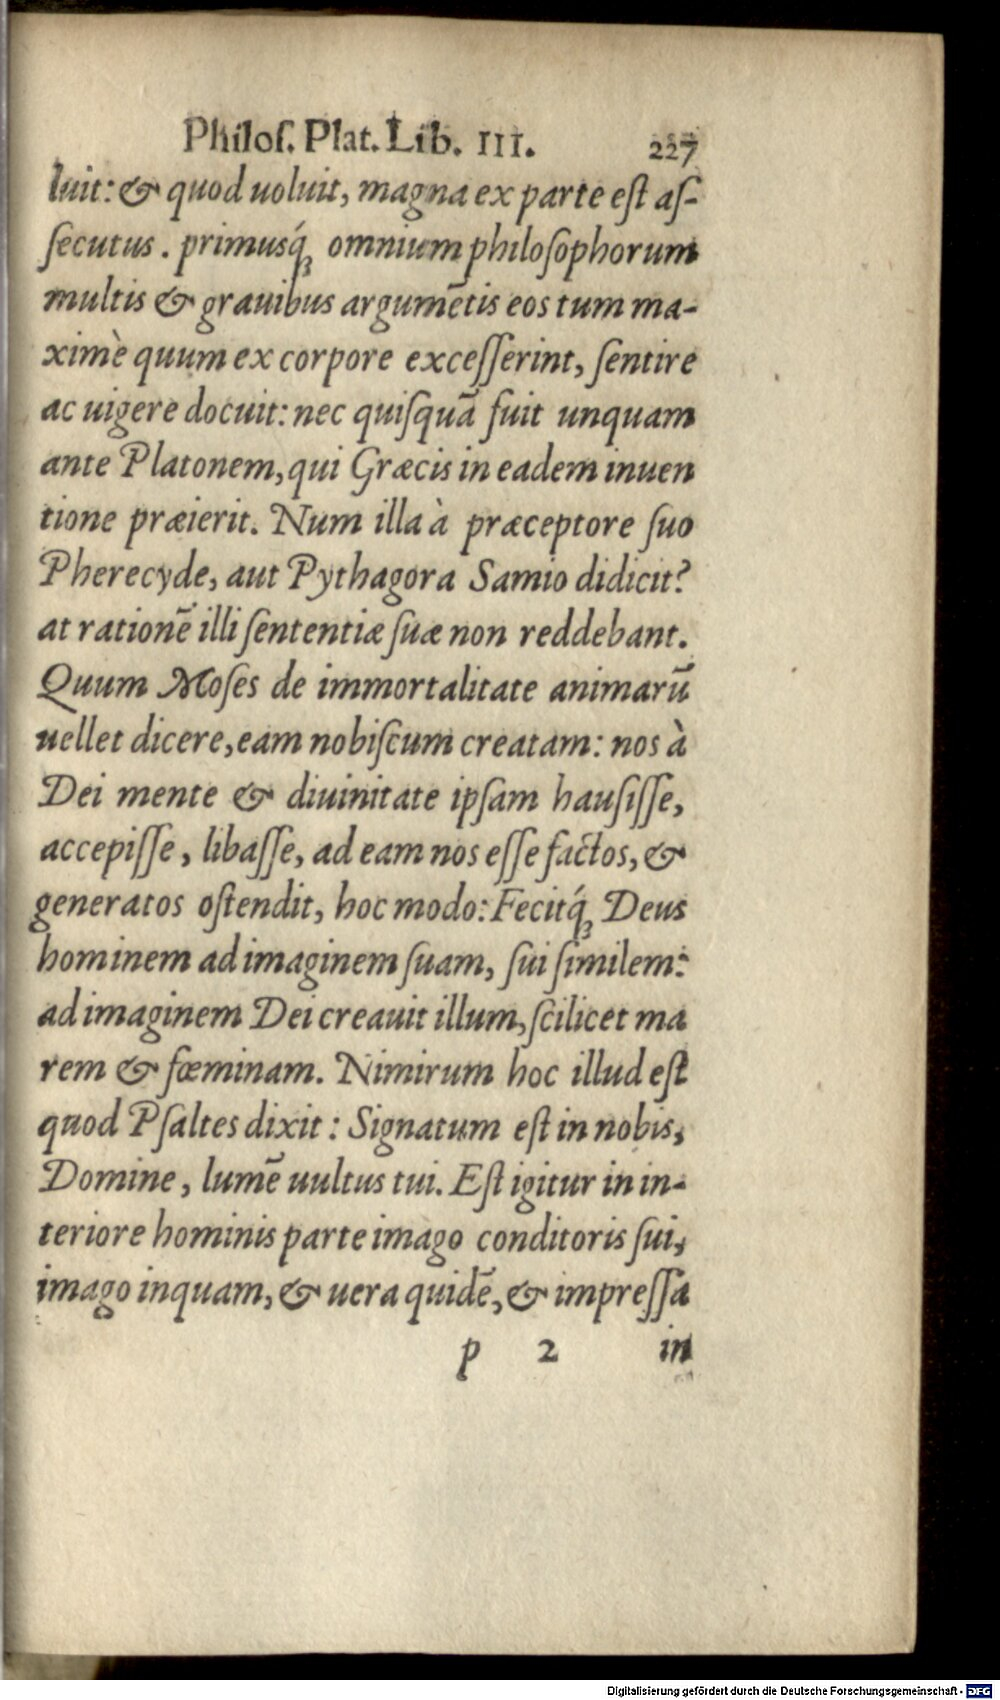 Philoſ. Plat. Lib. III. 227
luit: & quod uoluit, magna ex parte eſt aſ-
ſecutus. primusq́ꝫ omnium philoſophorum
multis & grauibus argumētis eos tum ma-
ximè quum ex corpore exceſſerint, ſentire
ac uigere docuit: nec quiſquā fuit unquam
ante Platonem, qui Græcis in eadem inuen
tione præierit. Num illa à præceptore ſuo
Pherecyde, aut Pythagora Samio didicit?
at rationē illi ſententiæ ſuæ non reddebant.
Quum Moſes de immortalitate animarū
uellet dicere, eam nobiſcum creatam: nos à
Dei mente & diuinitate ipſam hauſiſſe,
accepiſſe, libaſſe, ad eam nos eſſe factos, &
generatos oſtendit, hoc modo: Fecitq́ꝫ Deus
hominem ad imaginem ſuam, ſui ſimilem:
ad imaginem Dei creauit illum, ſcilicet ma
rem & fœminam. Nimirum hoc illud eſt
quod Pſaltes dixit: Signatum eſt in nobis,
Domine, lumē uultus tui. Eſt igitur in in-
teriore hominis parte imago conditoris ſui,
imago inquam, & uera quidē, & impreſſa
p 2 in
Digitalisierung gefördert durch die Deutsche Forschungsgemeinschaft - DFG